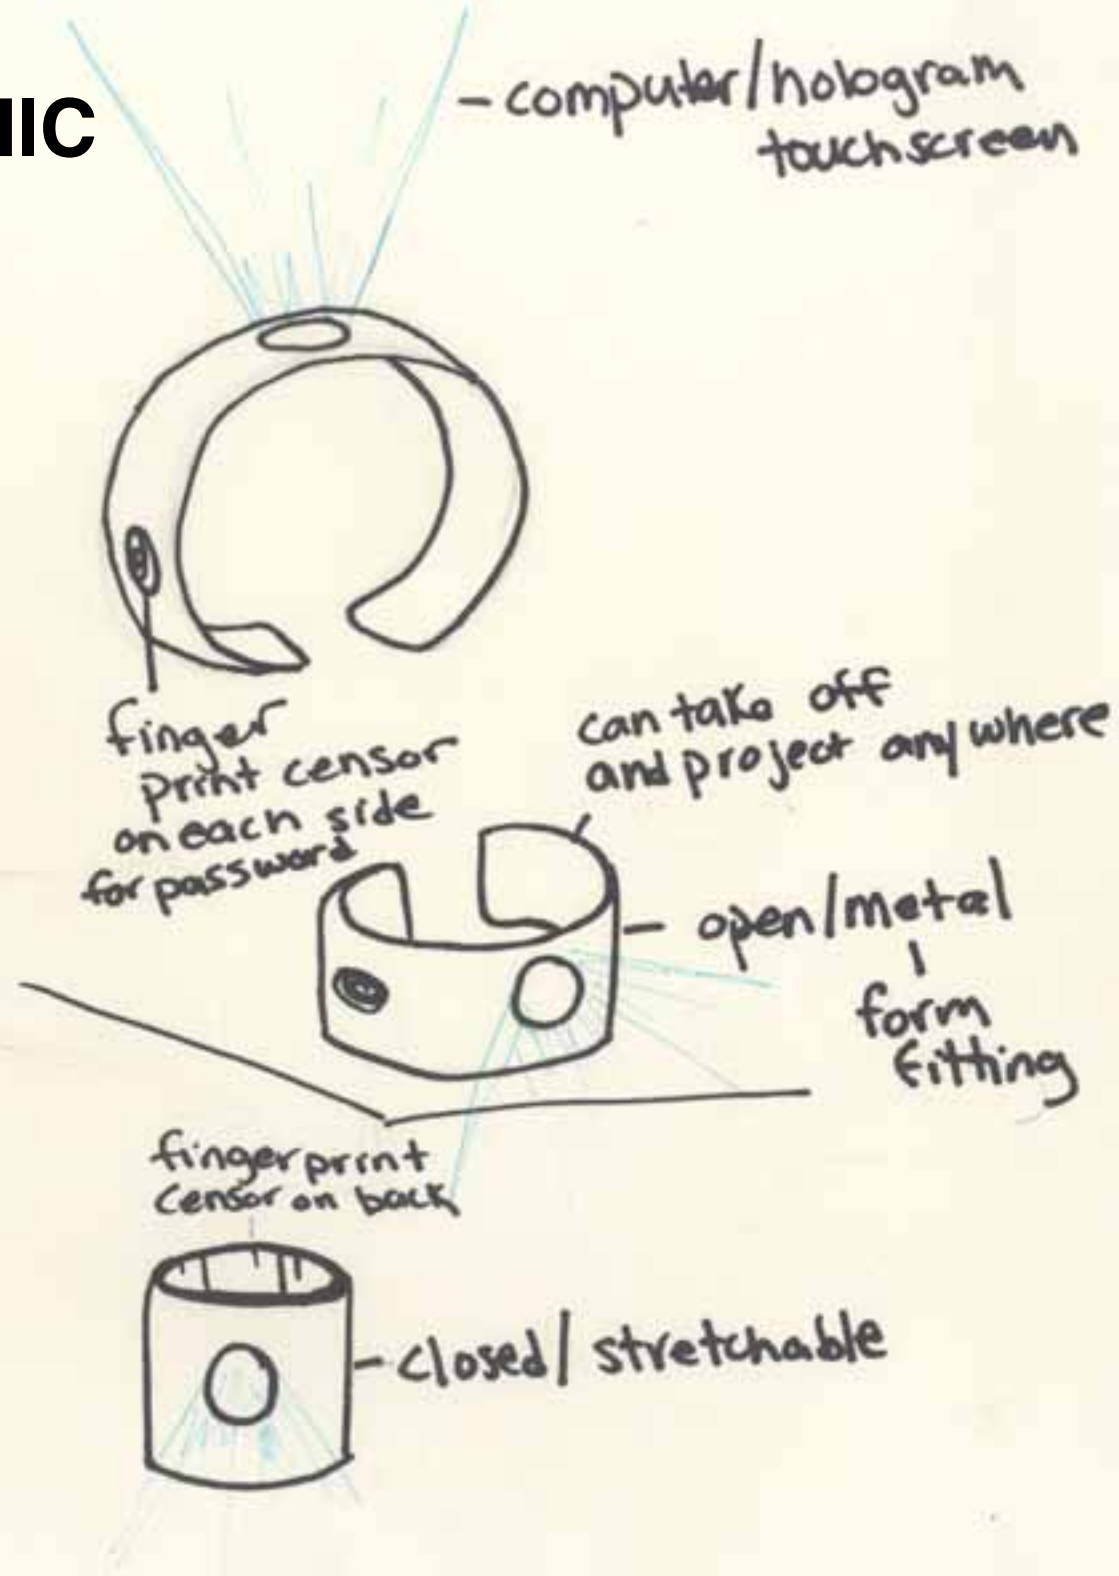 IIC
- computer/hologram
touchscreen
finger
print censor
on each side
for password
can take off
and project anywhere
- open/metal
form
fitting
fingerprint
censor on back
- closed/ stretchable